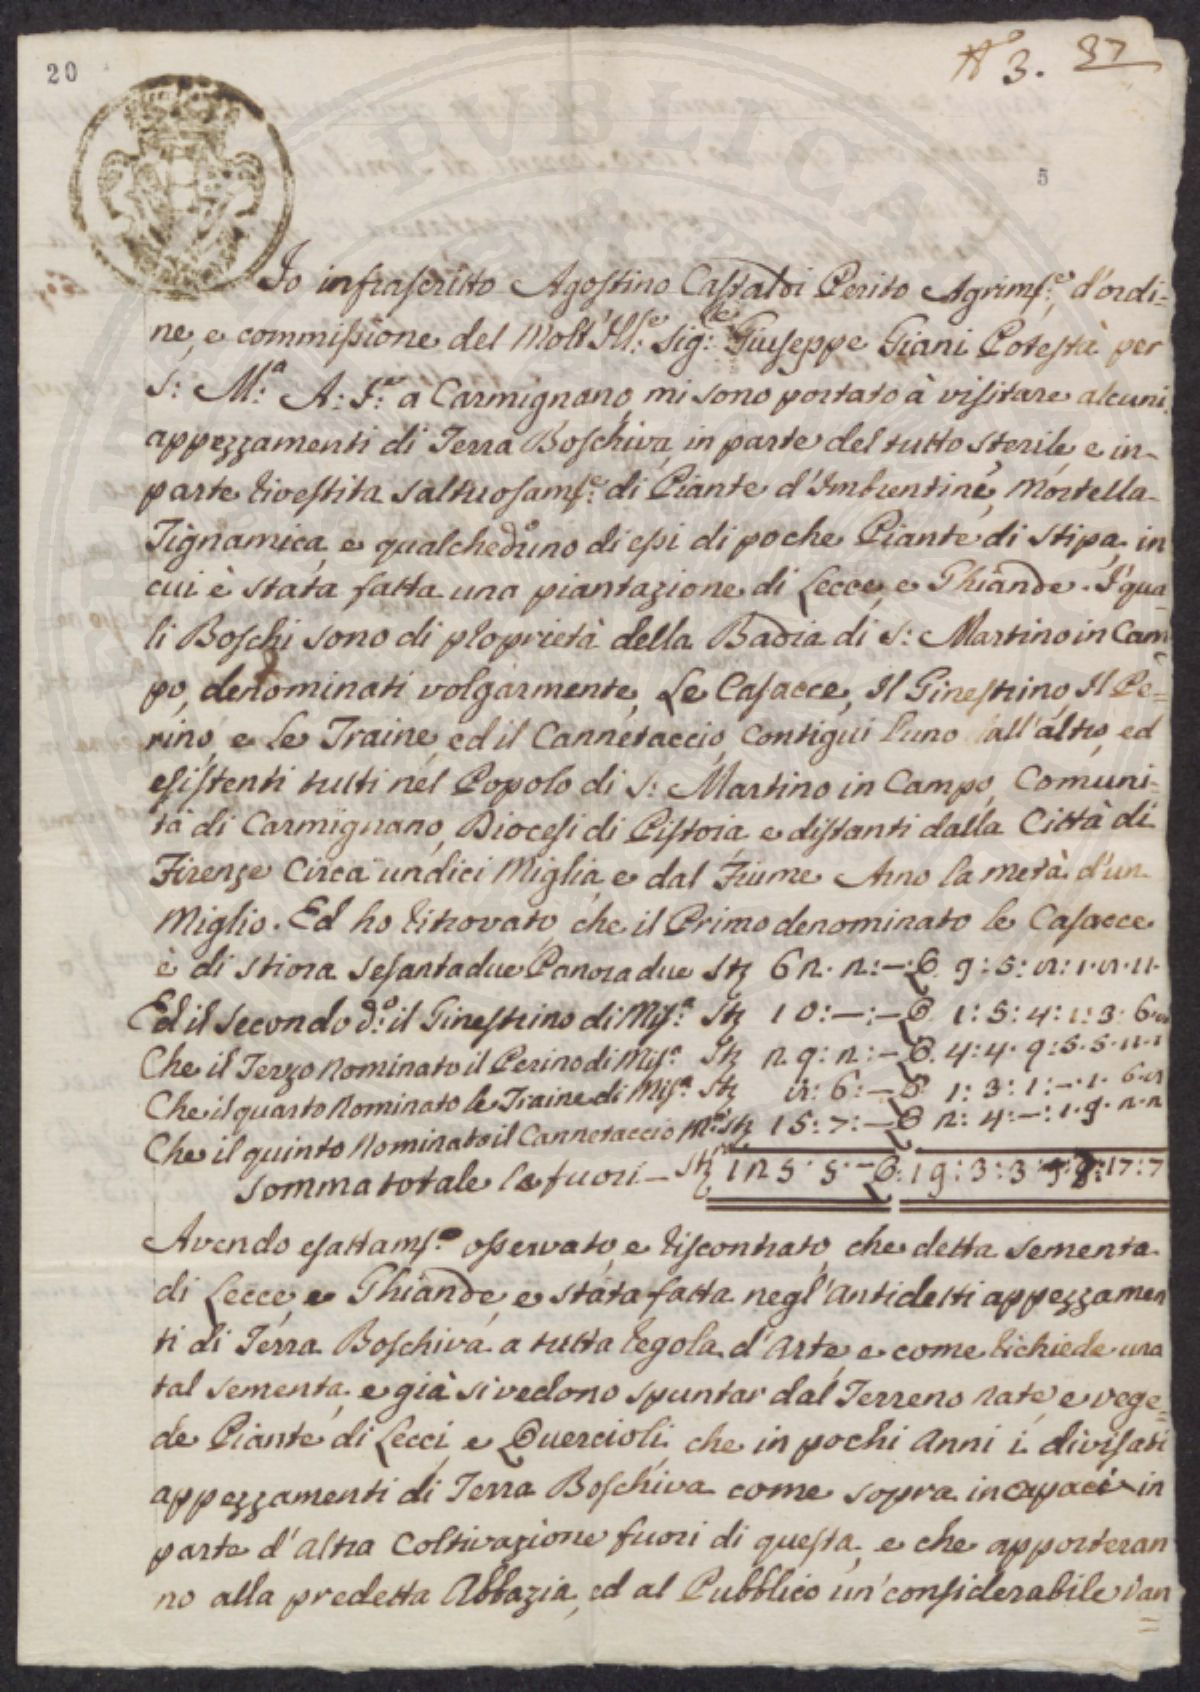 20
N.º 3. 37
5
Io infrascritto Agostino Castaldi Perito Agrims.e d'ordi-
ne, e commissione del Molt'Ill.e Sig.re Giuseppe Giani Potestà per
S: M.a A: I.e a Carmignano, mi sono portato à visitare alcuni
appezzamenti di Terra Boschiva, in parte del tutto sterile, e in-
parte rivestita saltuosam.e di Piante d'Imbrentine, Mortella
Tignamica, e qualcheduno di essi di poche Piante di stipa, in
cui è stata fatta una piantazione di Lecce, e Ghiande. I qua-
li Boschi sono di proprietà della Badia di S: Martino in Cam
po, denominati volgarmente, Le Casacce, Il Ginestrino, Il Pe=
rino, e le Traine, ed il Cannetaccio, Contigui l'uno all'altro, ed
esistenti tutti nel Popolo di S: Martino in Campo, Comuni-
tà di Carmignano, Diocesi di Pistoia e distanti dalla Città di
Firenze Circa undici Miglia, e dal Fiume Arno la metà d'un
Miglio. Ed ho ritrovato, che il Primo denominato le Casacce
è di stiora sesantadue Panora due St.
Ed il secondo d.o il Ginestrino di Mis.a St. 10:—:—
Che il Terzo Nominato il Perino di Mis.a St.
Che il quarto Nominato le Traine di Mis.a St.
Che il quinto Nominato il Cannetaccio M.a St. 15:7:—
Somma totale le fuori — St.
Avendo esattam.e osservato, e riscontrato, che detta sementa
di Lecce, e Ghiande, e stata fatta negl'antidetti appezzamen
ti di Terra Boschiva a tutta regola d'Arte, e come richiede una
tal sementa, e già si vedono spuntar dal Terreno nate, e vege=
de Piante di Lecci, e Quercioli, che in pochi Anni i divisati
appezzamenti di Terra Boschiva come sopra incapaci in
parte d'altra Coltivazione fuori di questa, e che apporteran
no alla predetta Abbazia, ed al Pubblico un'considerabile Van
=